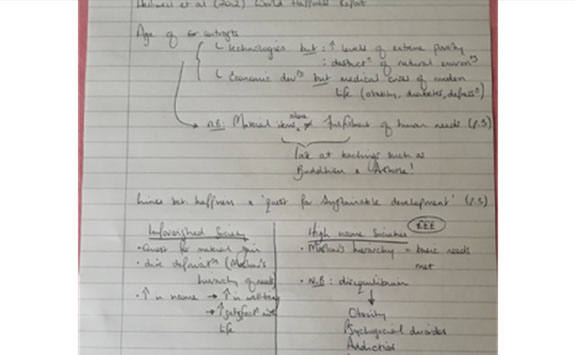 Helliwell et al (2012) World Happiness Report
Age of contrasts
↳ technologies but : ↑ levels of extreme poverty
: destruct° of natural environ
↳ Economic dev but medical crises of modern
life (obesity, diabetes, depress°)
N.B: Material items alone ≠ fulfilment of human needs (p.3)
look at teachings such as
Buddhism & Aristotle!
Links bet happiness & 'quest for sustainable development' (p.3)
Impoverished Society
• Quest for material gain
• dire deprivat (Maslow's
hierarchy of needs)
• ↑ in income → ↑ in wellbeing
→ ↑ satisfact with
life
High income Societies
£££
• Maslow's hierarchy = basic needs
met
• N.B : disequilibrium
↓
Obesity
Psychosocial disorders
Addiction